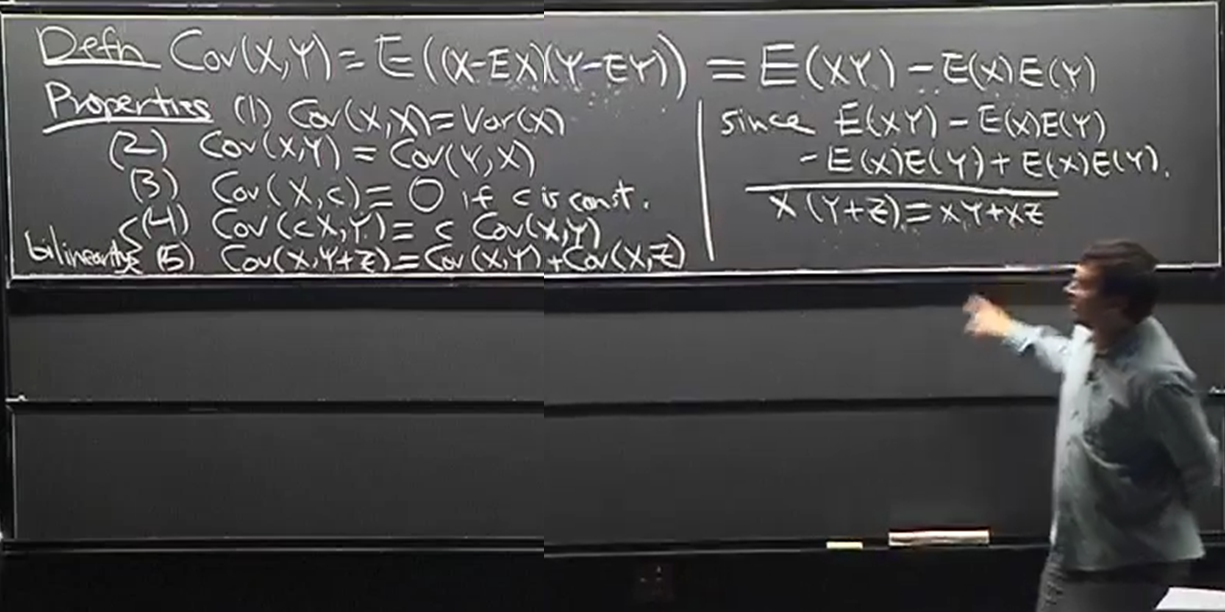 Defn Cov(X,Y) = E((X-EX)(Y-EY)) = E(XY) - E(X)E(Y)
Properties (1) Cov(X,X) = Var(X)
(2) Cov(X,Y) = Cov(Y,X)
(3) Cov(X,c) = 0 if c is const.
(4) Cov(cX,Y) = c Cov(X,Y)
bilinearity (5) Cov(X,Y+Z) = Cov(X,Y) + Cov(X,Z)
since E(XY) - E(X)E(Y)
- E(X)E(Y) + E(X)E(Y).
X(Y+Z) = XY+XZ